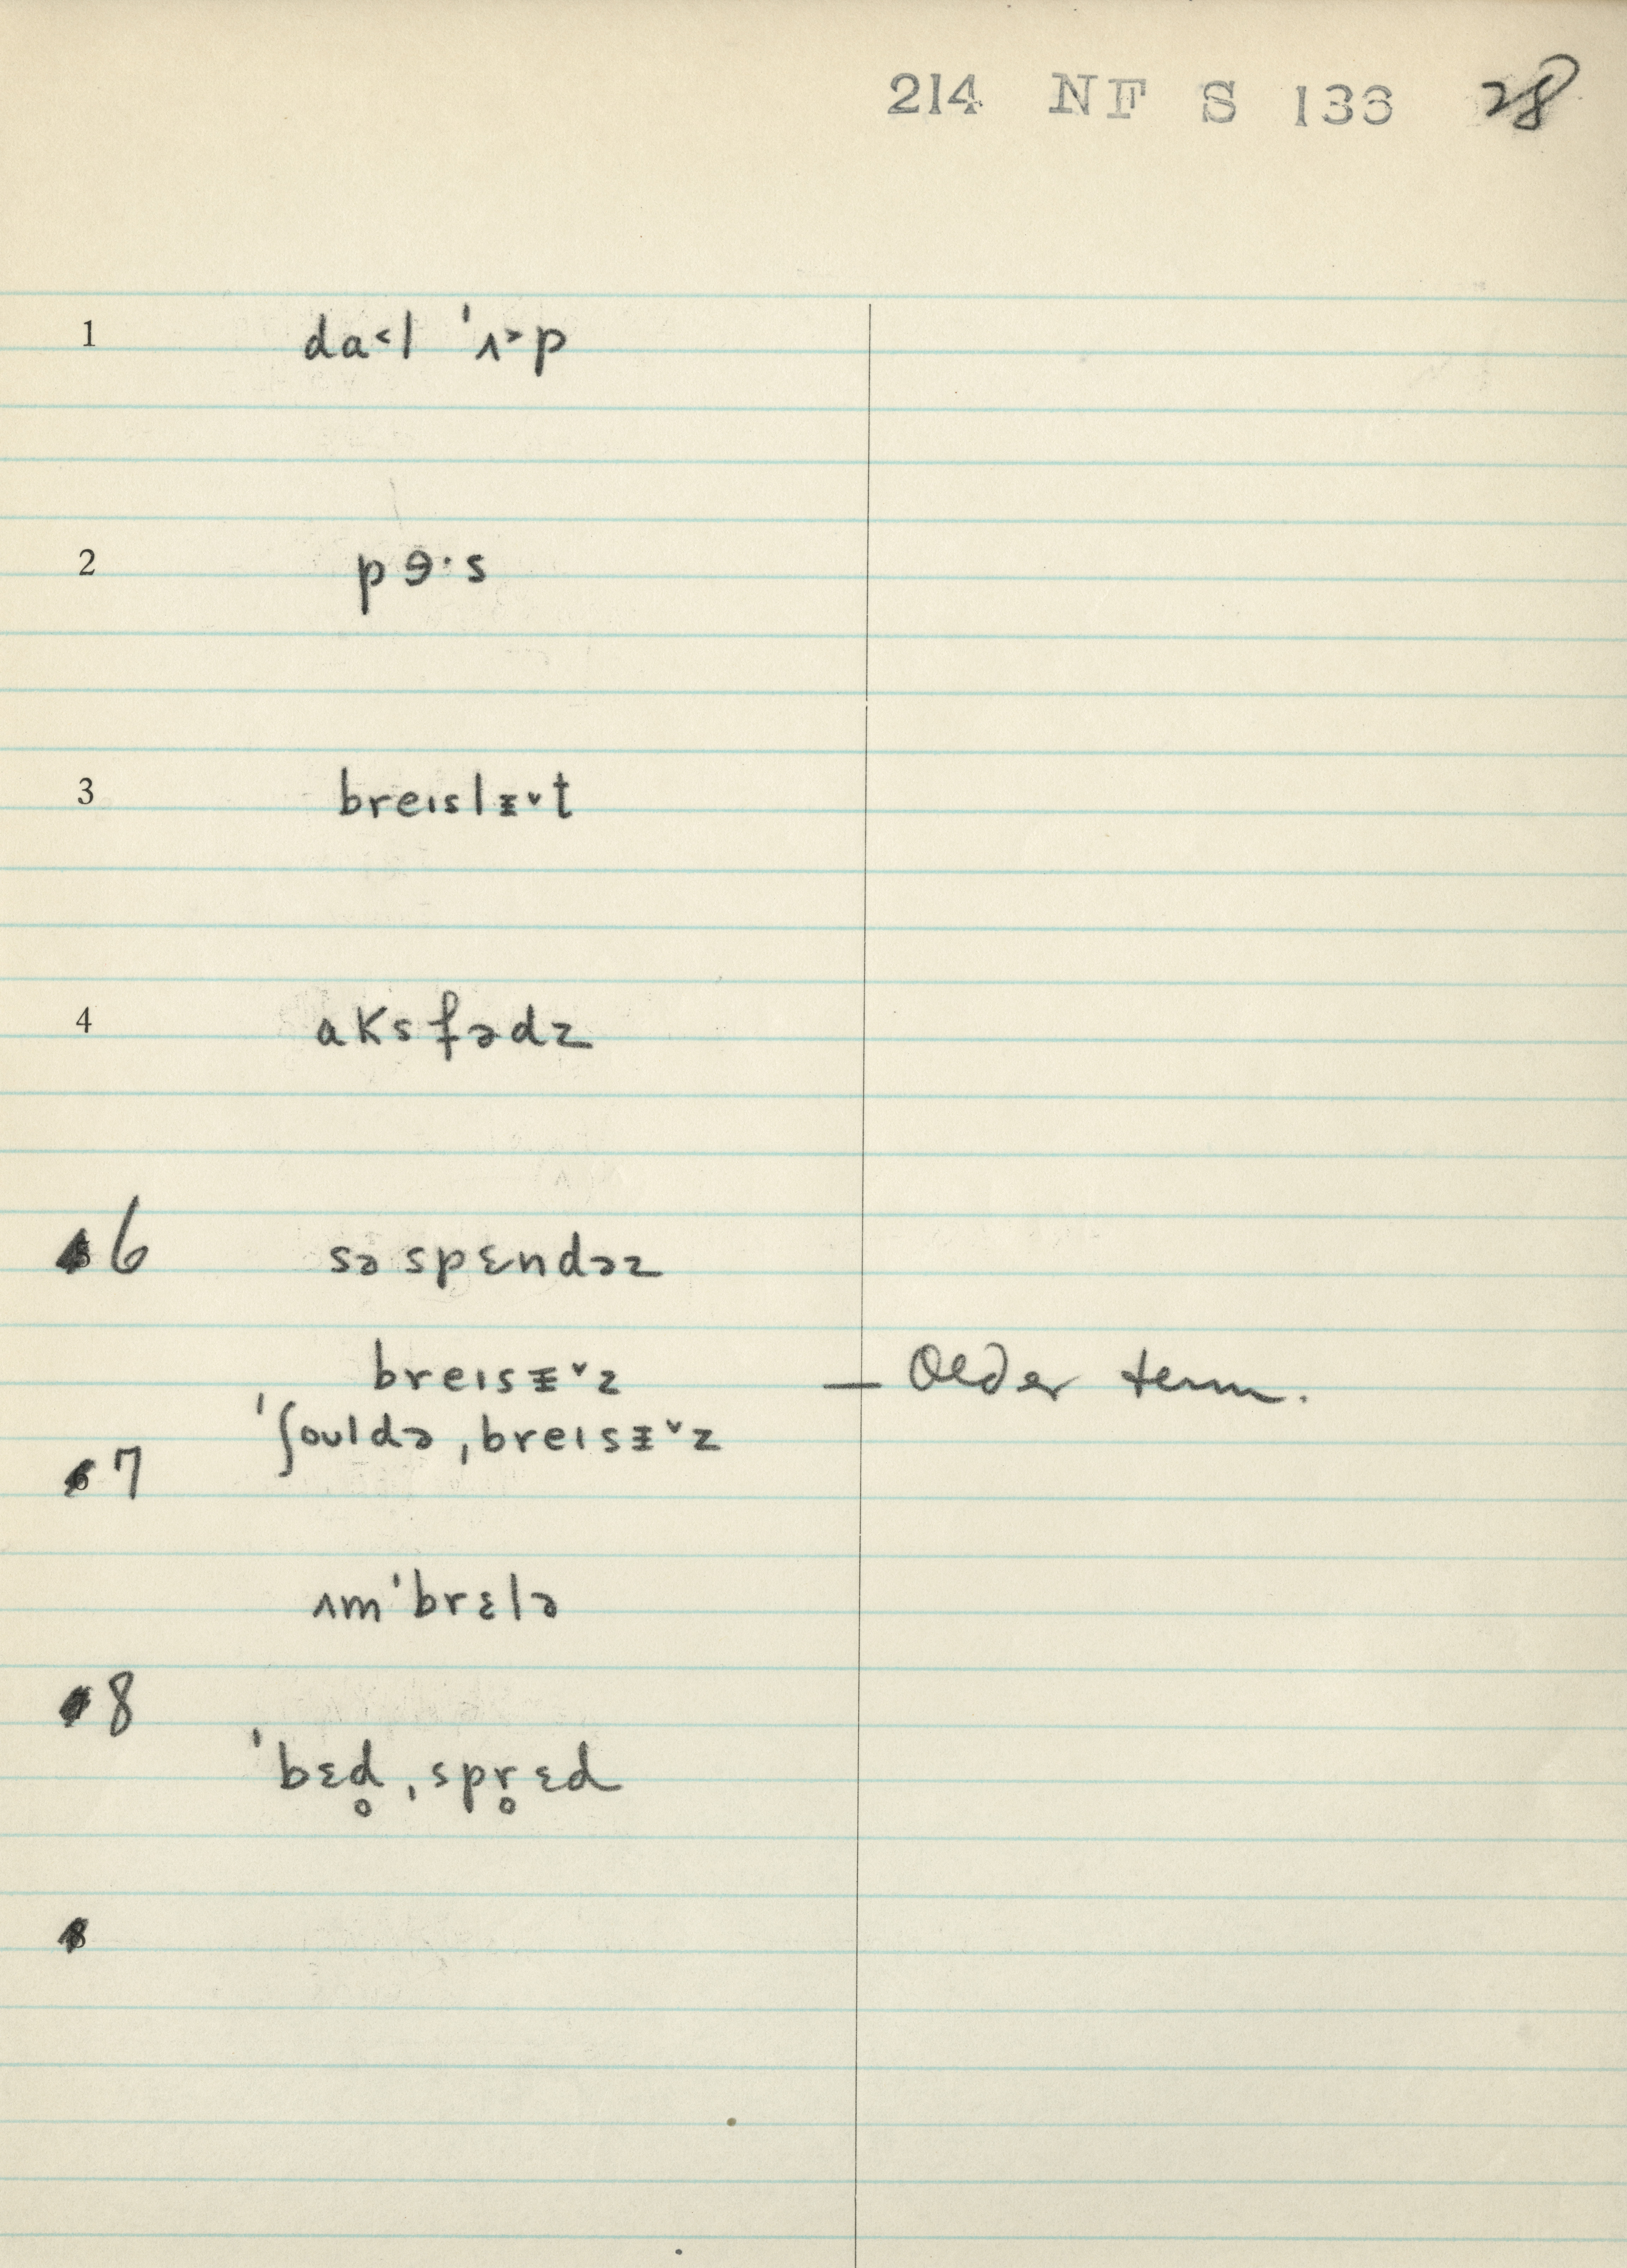 214 NF S 133 28
1 da˂l ˈʌ˃p
2 pɘ·s
3 breɪslᵻ˅t
4 aksfədz
6 səspɛndəz
breɪsᵻ˅z — Older term.
ˈʃouldə ˌbreɪsᵻ˅z
7
ʌmˈbrɛlə
8
ˈbɛd̥ ˌspr̥ɛd
8